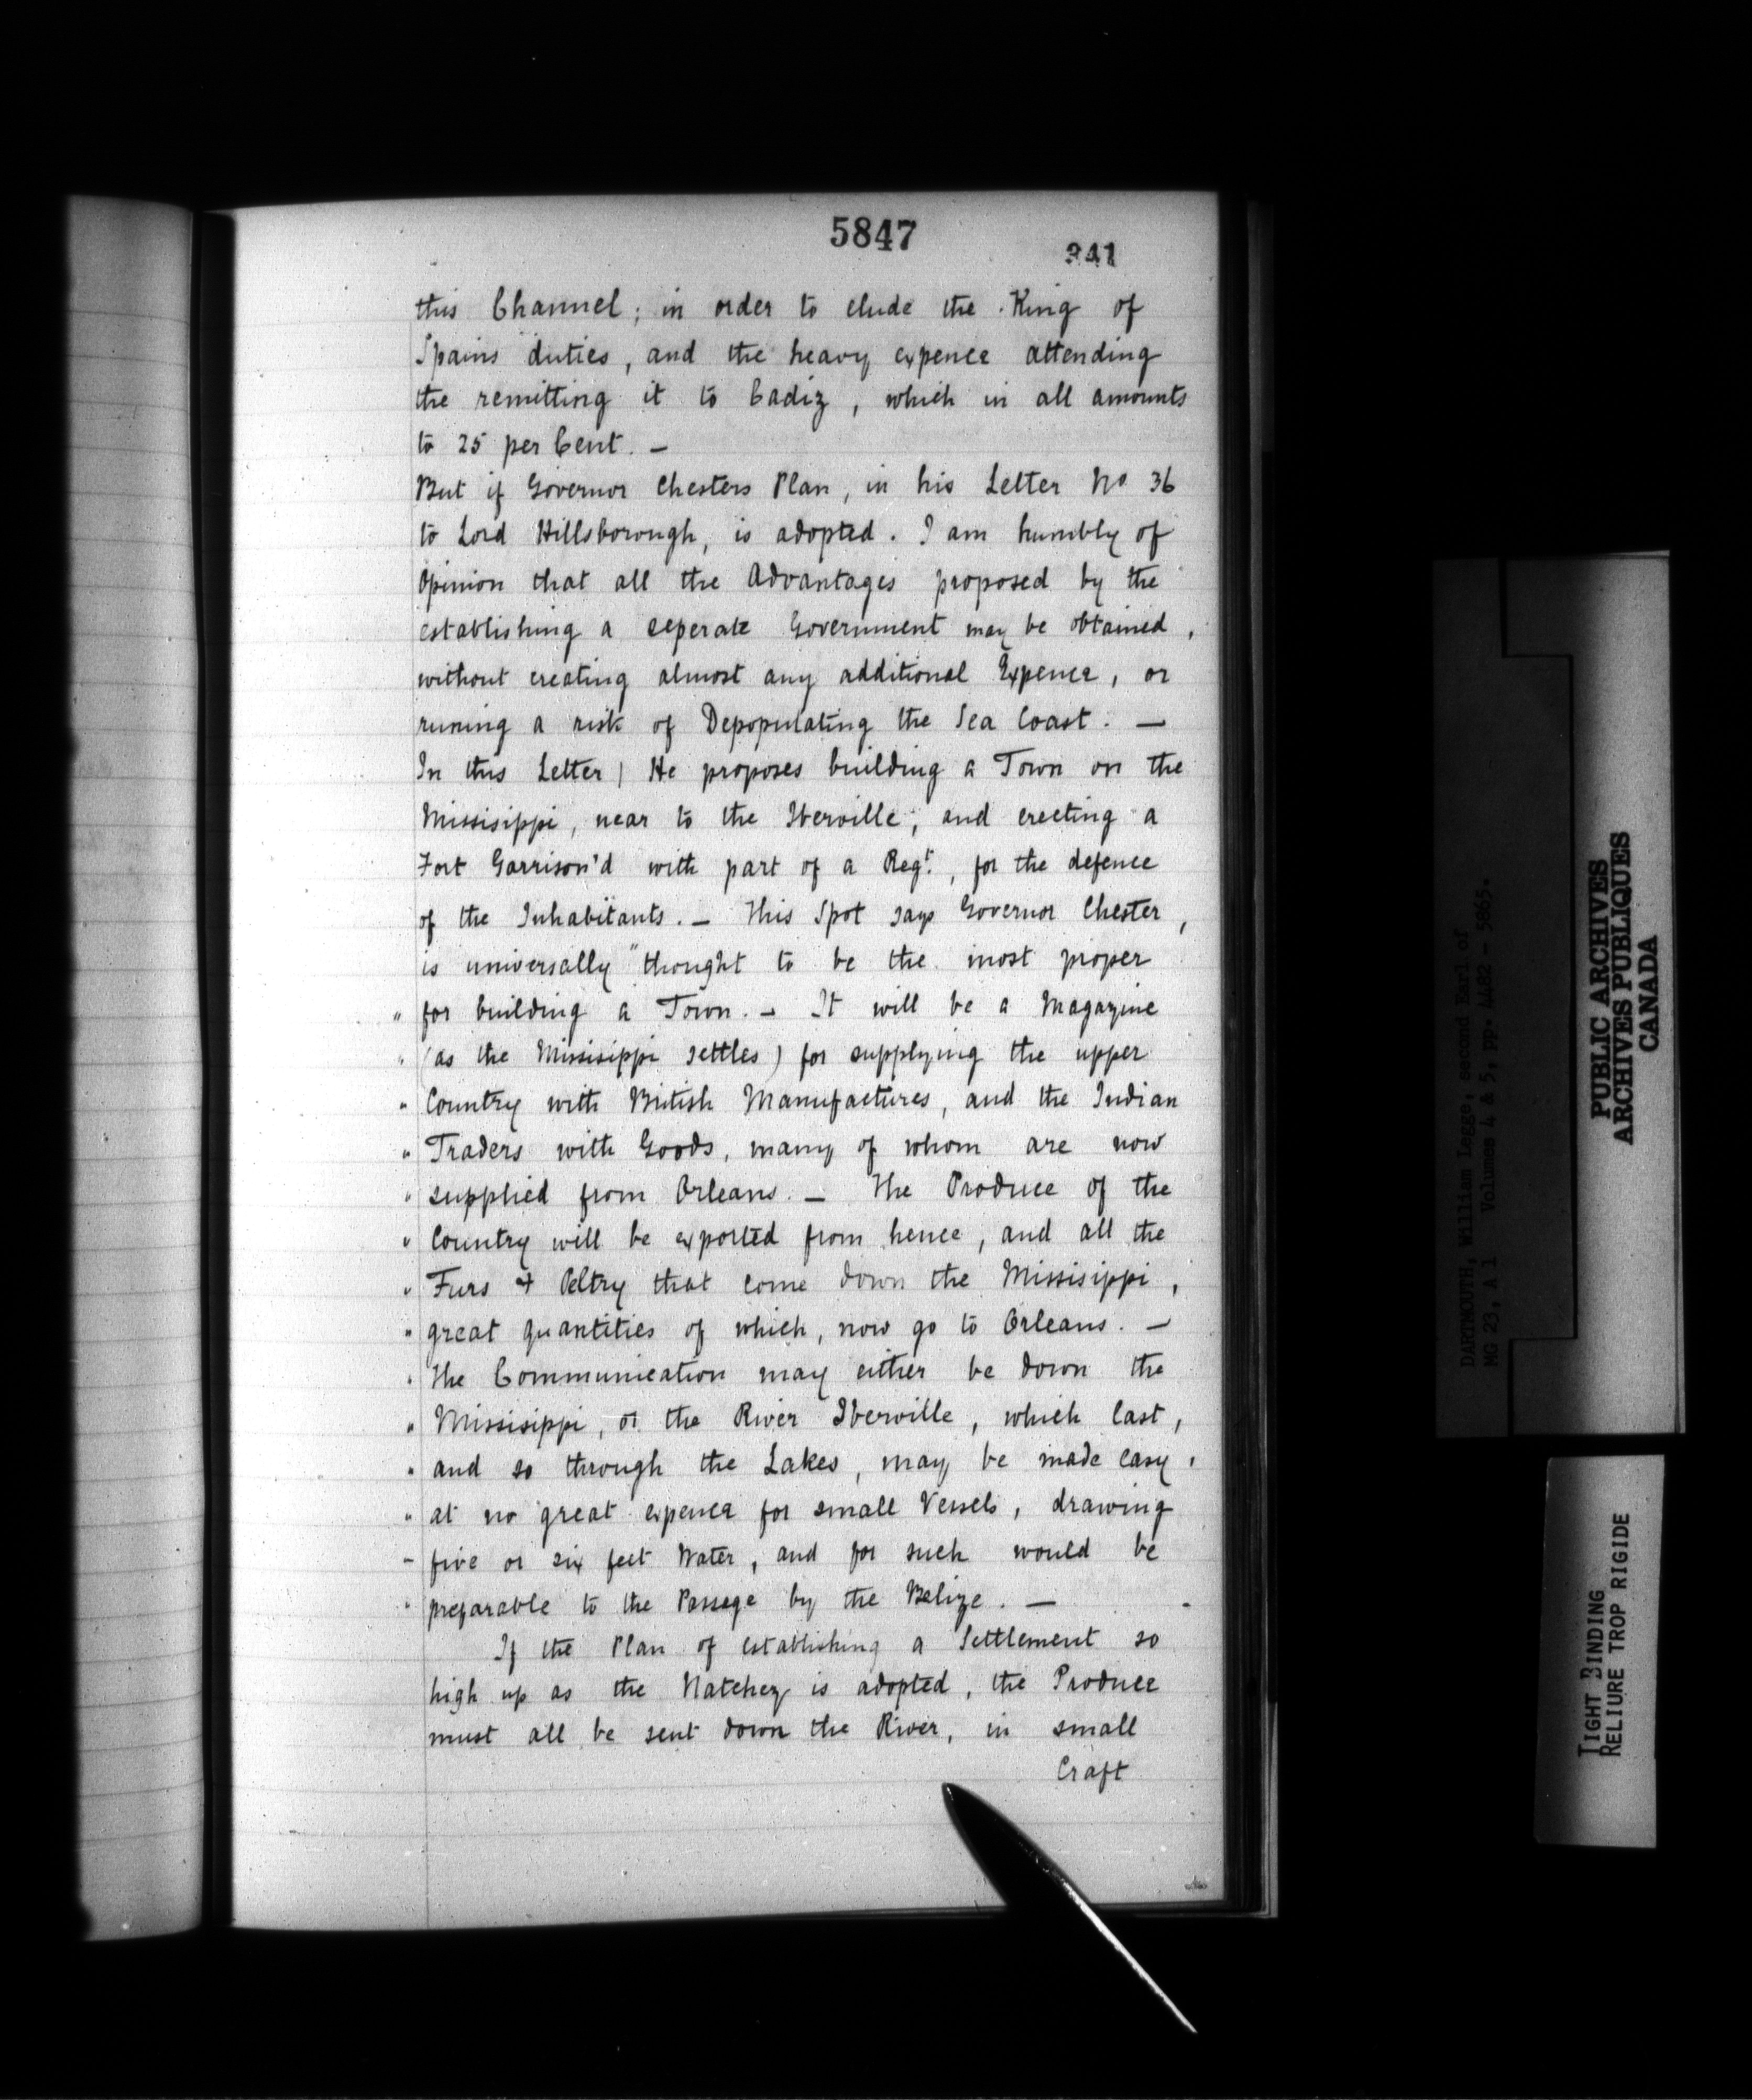 5847
341
this Channel; in order to elude the King of
Spains duties, and the heavy expence attending
the remitting it to Cadiz, which in all amounts
to 25 per Cent. —
But if Governor Chesters Plan, in his Letter No 36
to Lord Hillsborough, is adopted. I am humbly of
Opinion that all the Advantages proposed by the
establishing a seperate Government may be obtained,
without creating almost any additional Expence, or
runing a risk of Depopulating the Sea Coast. —
In this Letter) He proposes building a Town on the
Missisippi, near to the Iberville; and erecting a
Fort Garrison'd with part of a Regt., for the defence
of the Inhabitants. — This Spot says Governor Chester,
is universally "thought to be the most proper
" for building a Town. — It will be a Magazine
" (as the Missisippi settles) for supplying the upper
" Country with British Manufactures, and the Indian
" Traders with Goods, many of whom are now
" supplied from Orleans. — The Produce of the
" Country will be exported from hence, and all the
" Furs & Peltry that come down the Missisippi,
" great quantities of which, now go to Orleans. —
" The Communication may either be down the
" Missisippi, or the River Iberville, which last,
" and so through the Lakes, may be made easy,
" at no great expence for small Vessels, drawing
" five or six feet Water, and for such would be
" preparable to the Passage by the Belize. —
If the Plan of establishing a Settlement so
high up as the Natchez is adopted, the Produce
must all be sent down the River, in small
Craft
DARTMOUTH, William Legge, second Earl of
MG 23, A 1 Volumes 4 & 5, pp. 4482 - 5865.
PUBLIC ARCHIVES
ARCHIVES PUBLIQUES
CANADA
TIGHT BINDING
RELIURE TROP RIGIDE